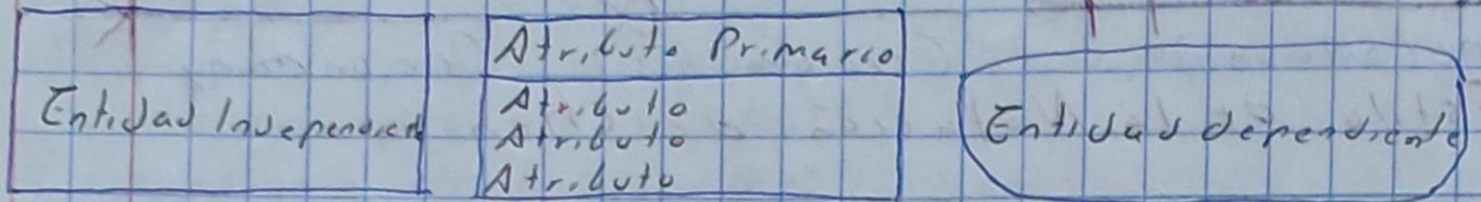 Entidad Independient
Atributo Primario
Atributo
Atributo
Atributo
Entidad dependiente